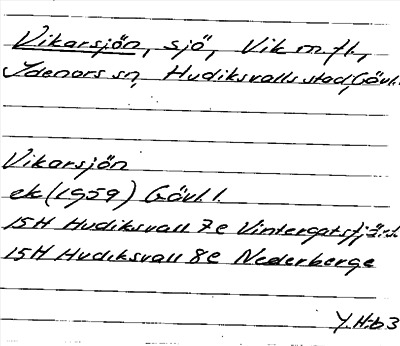 Vikarsjön, sjö, Vik m.fl.,
Idenors sn, Hudiksvalls stad, Gävl.
Vikarsjön
ek (1959) Gävl. l.
15H Hudiksvall 7e Vintergatsfjärd.
15H Hudiksvall 8e Nederberge
Y.H:b 3